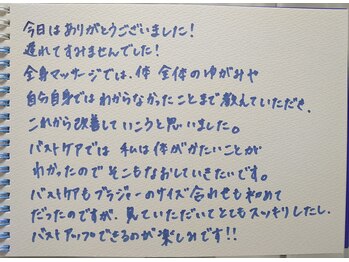 今日はありがとうございました！
遅れてすみませんでした！
全身マッサージでは、体 全体のゆがみや
自分自身ではわからなかったことまで教えていただき、
これから改善していこうと思いました。
バストケアでは 私は体がかたいことが
わかったのでそこもなおしていきたいです。
バストケアもブラジャーのサイズ合わせも初めて
だったのですが、見ていただいてとてもスッキリしたし、
バストアップできるのが楽しみです!!